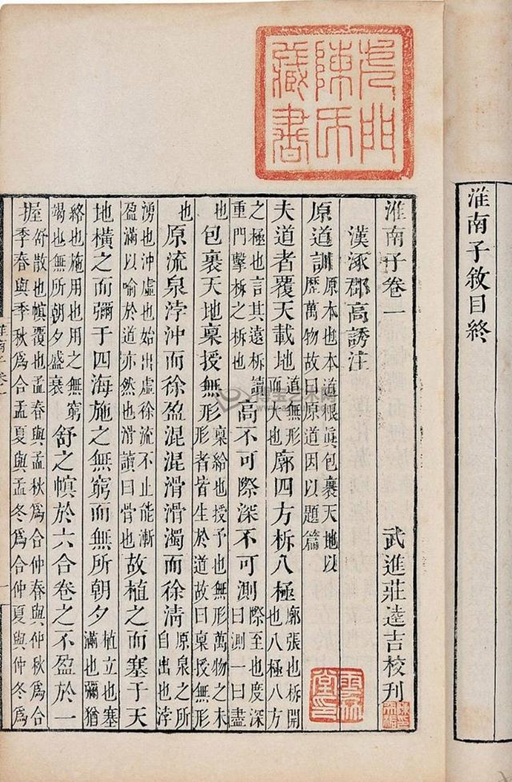 淮南子敘目終
淮南子卷一
武進莊逵吉校刊
漢涿郡高誘注
原道訓 原本也本道根眞包裹天地以歷萬物故曰原道因以題篇
夫道者覆天載地 道無形而大也 廓四方柝八極 廓張也柝開也八極八方
之極也言其遠柝讀重門擊柝之柝也 高不可際深不可測 際至也度深曰測一曰盡
也 包裹天地稟授無形 稟給也授予也無形萬物之未形者皆生於道故曰稟授無形
也 原流泉浡沖而徐盈混混滑滑濁而徐清 原泉之所自出也浡
湧也沖虛也始出虛徐流不止能漸盈滿以喻於道亦然也滑讀曰骨也 故植之而塞于天
地橫之而彌于四海施之無窮而無所朝夕 植立也塞滿也彌猶
終也施用也用之無窮竭也無所朝夕盛衰 舒之幎於六合卷之不盈於一
握 舒散也幎覆也孟春與孟秋爲合仲春與仲秋爲合季春與季秋爲合孟夏與孟冬爲合仲夏與仲冬爲
陳氏
藏書